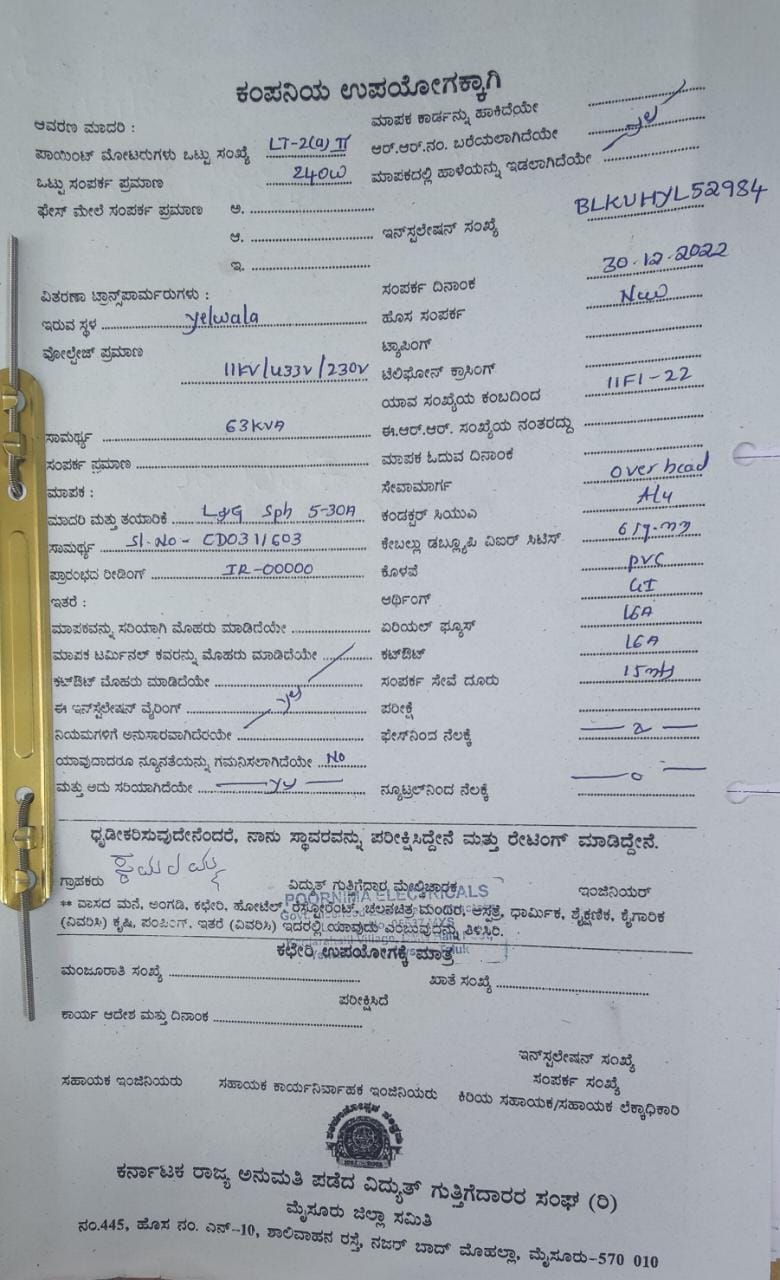 ಕಂಪನಿಯ ಉಪಯೋಗಕ್ಕಾಗಿ
ಆವರಣ ಮಾದರಿ : ಮಾಪಕ ಕಾರ್ಡನ್ನು ಹಾಕಿದೆಯೇ
ಪಾಯಿಂಟ್ ಮೋಟರುಗಳು ಒಟ್ಟು ಸಂಖ್ಯೆ LT-2(a) II ಆರ್.ಆರ್.ನಂ. ಬರೆಯಲಾಗಿದೆಯೇ
ಒಟ್ಟು ಸಂಪರ್ಕ ಪ್ರಮಾಣ 240W ಮಾಪಕದಲ್ಲಿ ಹಾಳೆಯನ್ನು ಇಡಲಾಗಿದೆಯೇ
ಫೇಸ್ ಮೇಲೆ ಸಂಪರ್ಕ ಪ್ರಮಾಣ ಅ.
ಆ. ಇನ್‌ಸ್ಟಲೇಷನ್ ಸಂಖ್ಯೆ BLKUHYL52984
ಇ.
ಸಂಪರ್ಕ ದಿನಾಂಕ 30.12.2022
ವಿತರಣಾ ಟ್ರಾನ್ಸ್‌ಪಾರ್ಮರುಗಳು :
ಇರುವ ಸ್ಥಳ Yelwala ಹೊಸ ಸಂಪರ್ಕ New
ವೋಲ್ಟೇಜ್ ಪ್ರಮಾಣ ಟ್ಯಾಪಿಂಗ್
11KV/433V/230V ಟೆಲಿಫೋನ್ ಕ್ರಾಸಿಂಗ್
ಯಾವ ಸಂಖ್ಯೆಯ ಕಂಬದಿಂದ 11F1-22
ಸಾಮರ್ಥ್ಯ 63KVA ಈ.ಆರ್.ಆರ್. ಸಂಖ್ಯೆಯ ನಂತರದ್ದು
ಸಂಪರ್ಕ ಪ್ರಮಾಣ ಮಾಪಕ ಓದುವ ದಿನಾಂಕ
ಮಾಪಕ : ಸೇವಾಮಾರ್ಗ over head
ಮಾದರಿ ಮತ್ತು ತಯಾರಿಕೆ L&G Sph 5-30A ಕಂಡಕ್ಟರ್ ಸಿಯುವಿ Alu
ಸಾಮರ್ಥ್ಯ Sl.No - CD031/603 ಕೇಬಲ್ಲು ಡಬ್ಲ್ಯೂಪಿ ವಿಐರ್ ಸಿಟಿಸ್
ಪ್ರಾರಂಭದ ರೀಡಿಂಗ್ IR-00000 ಕೊಳವೆ PVC
ಇತರೆ : ಆರ್ಥಿಂಗ್ GI
ಮಾಪಕವನ್ನು ಸರಿಯಾಗಿ ಮೊಹರು ಮಾಡಿದೆಯೇ ಏರಿಯಲ್ ಫ್ಯೂಸ್ 16A
ಮಾಪಕ ಟರ್ಮಿನಲ್ ಕವರನ್ನು ಮೊಹರು ಮಾಡಿದೆಯೇ ಕಟ್‌ಔಟ್ 16A
ಕಟ್‌ಔಟ್ ಮೊಹರು ಮಾಡಿದೆಯೇ ಸಂಪರ್ಕ ಸೇವೆ ದೂರು
ಈ ಇನ್‌ಸ್ಟೆಲೇಷನ್ ವೈರಿಂಗ್ ಪರೀಕ್ಷೆ
ನಿಯಮಗಳಿಗೆ ಅನುಸಾರವಾಗಿದೆರಯೇ ಫೇಸ್‌ನಿಂದ ನೆಲಕ್ಕೆ
ಯಾವುದಾದರೂ ನ್ಯೂನತೆಯನ್ನು ಗಮನಿಸಲಾಗಿದೆಯೇ No
ಮತ್ತು ಅದು ಸರಿಯಾಗಿದೆಯೇ ನ್ಯೂಟ್ರಲ್‌ನಿಂದ ನೆಲಕ್ಕೆ
ಧೃಡೀಕರಿಸುವುದೇನೆಂದರೆ, ನಾನು ಸ್ಥಾವರವನ್ನು ಪರೀಕ್ಷಿಸಿದ್ದೇನೆ ಮತ್ತು ರೇಟಿಂಗ್ ಮಾಡಿದ್ದೇನೆ.
ಗ್ರಾಹಕರು ವಿದ್ಯುತ್ ಗುತ್ತಿಗೆದಾರ ಮೇಲ್ವಿಚಾರಕ ಇಂಜಿನಿಯರ್
POORNIMA ELECTRICALS
** ವಾಸದ ಮನೆ, ಅಂಗಡಿ, ಕಛೇರಿ, ಹೋಟೆಲ್, ರೆಸ್ಟೋರೆಂಟ್, ಚಲನಚಿತ್ರ ಮಂದಿರ, ಆಸ್ಪತ್ರೆ, ಧಾರ್ಮಿಕ, ಶೈಕ್ಷಣಿಕ, ಕೈಗಾರಿಕ
(ವಿವರಿಸಿ) ಕೃಷಿ, ಪಂಪಿಂಗ್, ಇತರೆ (ವಿವರಿಸಿ) ಇದರಲ್ಲಿ ಯಾವುದು ಎಂಬುವುದನ್ನು ತಿಳಿಸಿರಿ.
ಕಛೇರಿ ಉಪಯೋಗಕ್ಕೆ ಮಾತ್ರ
ಮಂಜೂರಾತಿ ಸಂಖ್ಯೆ ಖಾತೆ ಸಂಖ್ಯೆ
ಪರೀಕ್ಷಿಸಿದೆ
ಕಾರ್ಯ ಆದೇಶ ಮತ್ತು ದಿನಾಂಕ
ಇನ್‌ಸ್ಟಲೇಷನ್ ಸಂಖ್ಯೆ
ಸಂಪರ್ಕ ಸಂಖ್ಯೆ
ಸಹಾಯಕ ಇಂಜಿನಿಯರು ಸಹಾಯಕ ಕಾರ್ಯನಿರ್ವಾಹಕ ಇಂಜಿನಿಯರು ಕಿರಿಯ ಸಹಾಯಕ/ಸಹಾಯಕ ಲೆಕ್ಕಾಧಿಕಾರಿ
ಕರ್ನಾಟಕ ರಾಜ್ಯ ಅನುಮತಿ ಪಡೆದ ವಿದ್ಯುತ್ ಗುತ್ತಿಗೆದಾರರ ಸಂಘ (ರಿ)
ಮೈಸೂರು ಜಿಲ್ಲಾ ಸಮಿತಿ
ನಂ.445, ಹೊಸ ನಂ. ಎನ್-10, ಶಾಲಿವಾಹನ ರಸ್ತೆ, ನಜರ್ ಬಾದ್ ಮೊಹಲ್ಲಾ, ಮೈಸೂರು-570 010